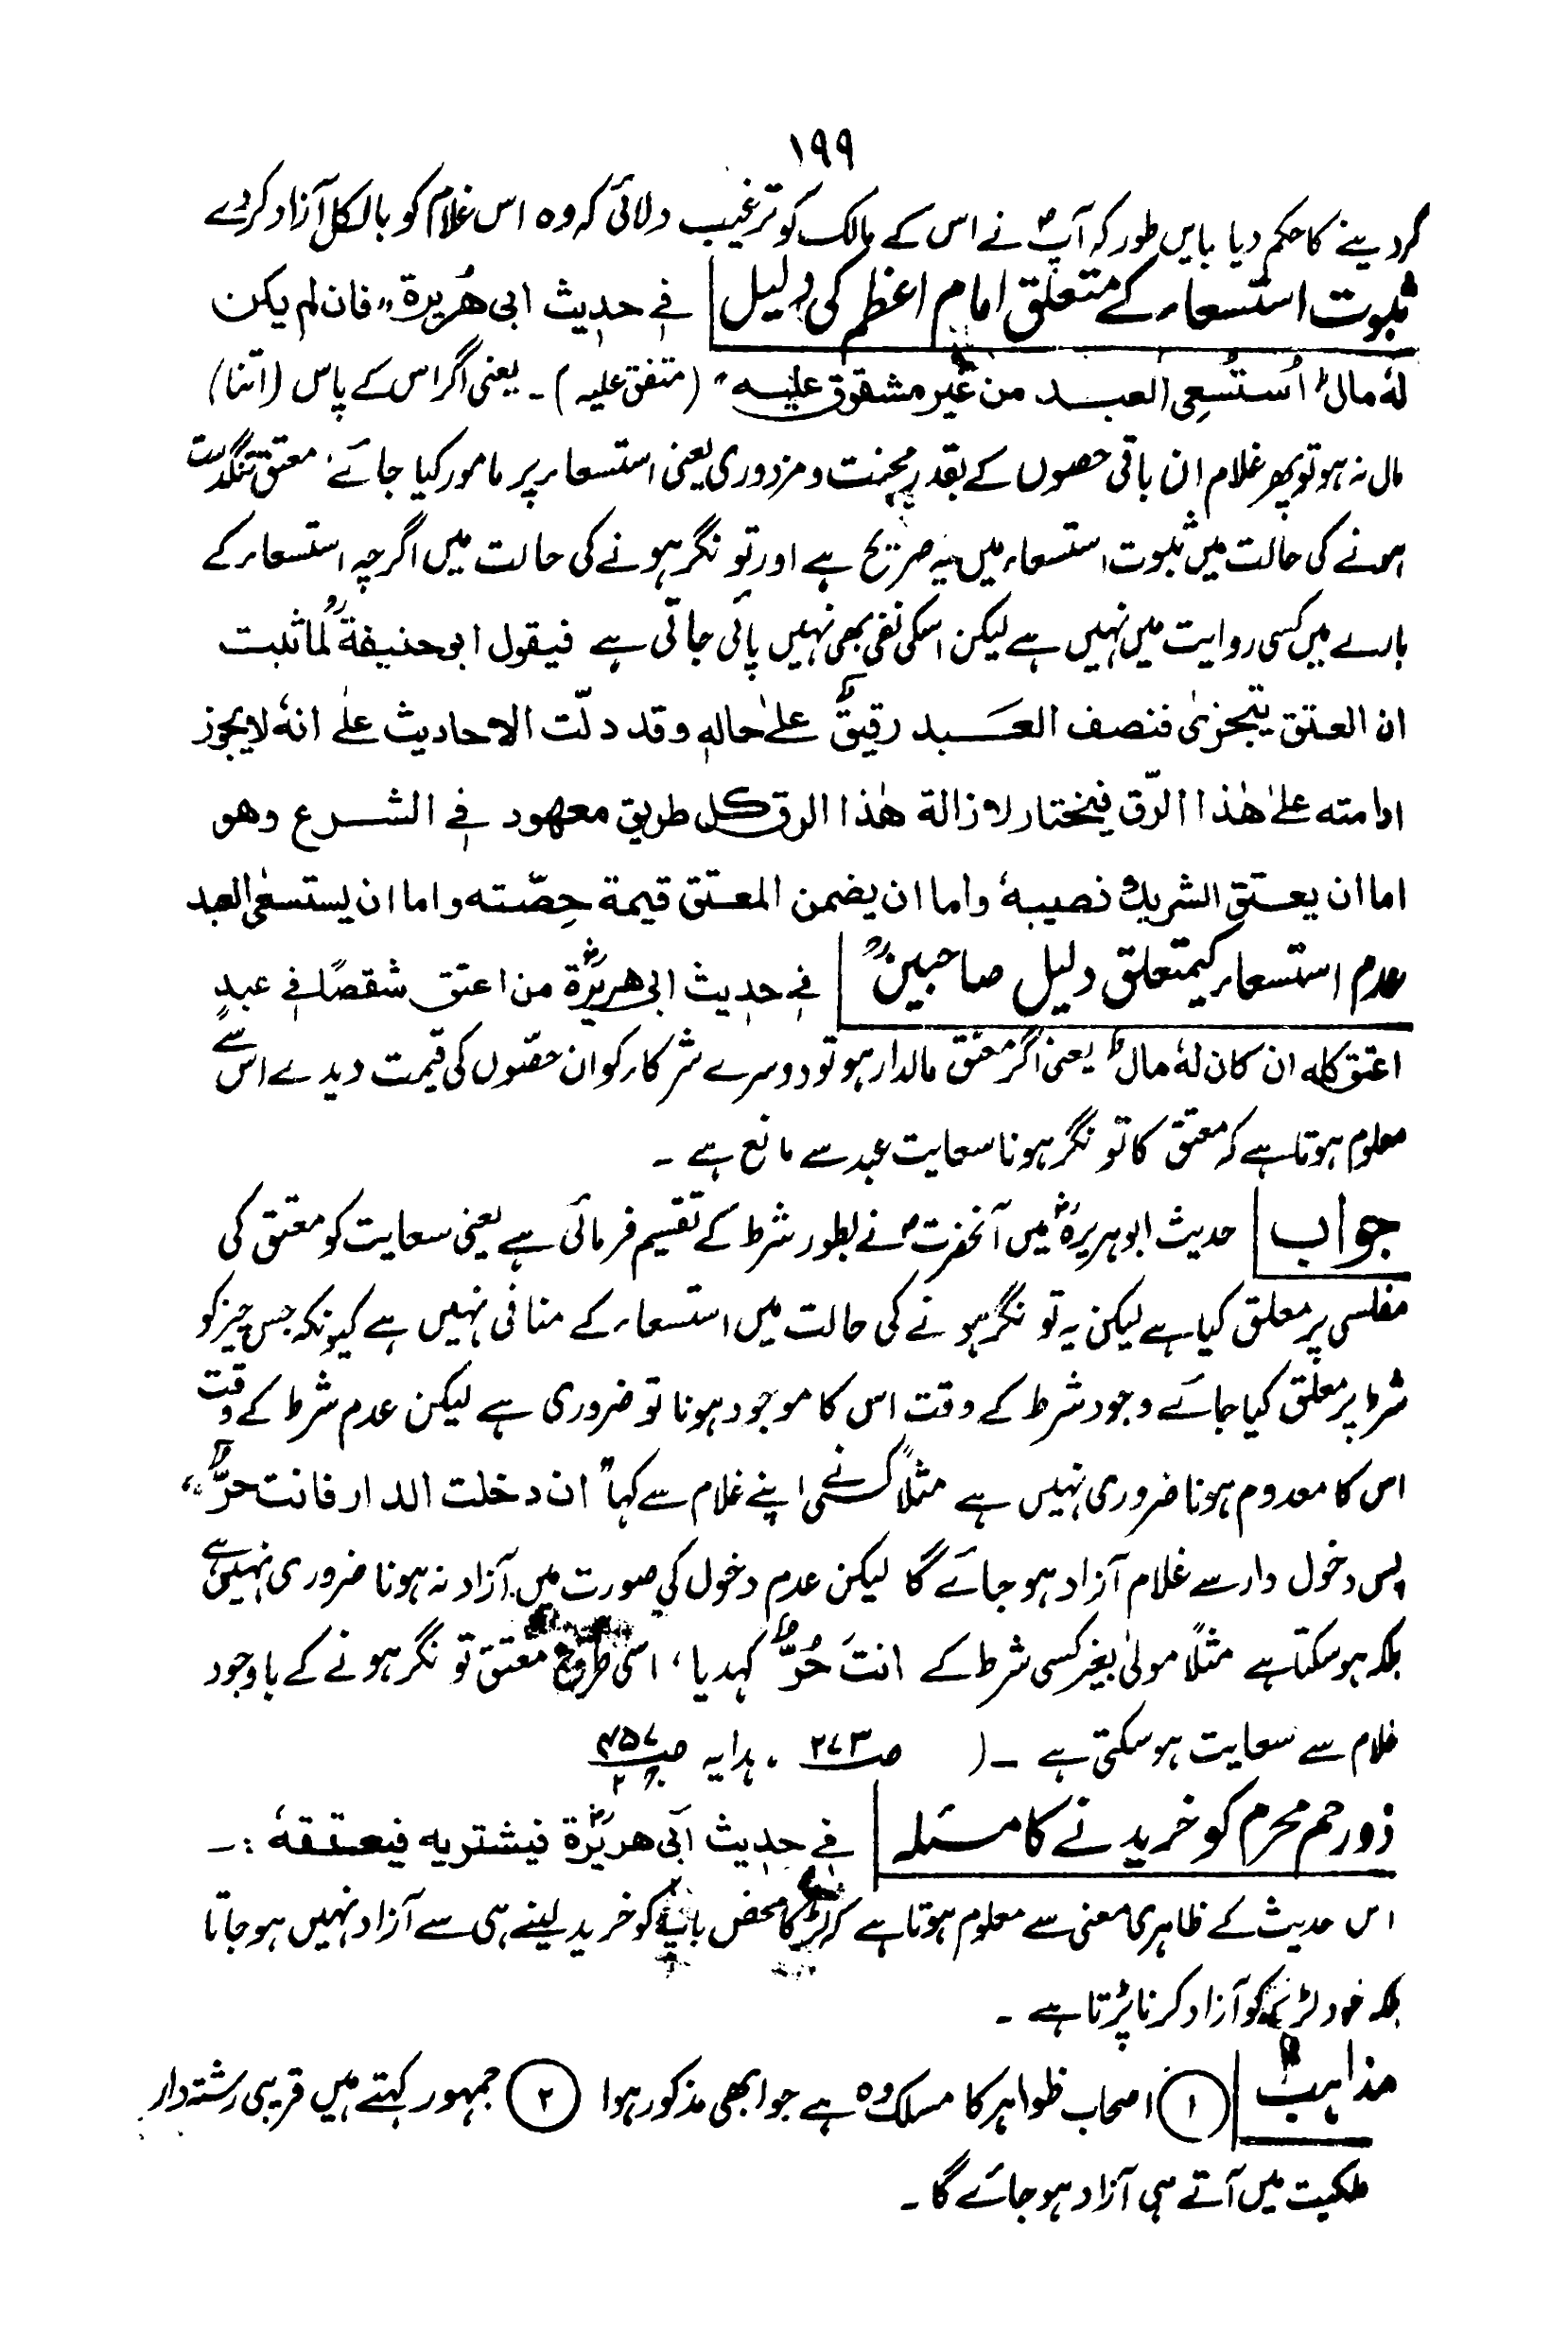 ۱۹۹
کردینے کا حکم دیا بایں طور کہ آپؐ نے اس کے مالک کو ترغیب دلائی کہ وہ اس غلام کو بالکل آزاد کردے
ثبوت استسعاء کے متعلق امام اعظم کی دلیل فی حدیث ابی هُریرة „ فان لم یکن
لهٗ مالٌ اُستُسعِی العبد من غیر مشقوق علیه " (متفق علیہ) ۔ یعنی اگر اس کے پاس (اتنا)
مال نہ ہو تو پھر غلام ان باقی حصوں کے بقدر محنت و مزدوری یعنی استسعاء پر مامور کیا جائے، معتق تنگدست
ہونے کی حالت میں ثبوت استسعاء میں یہ صریح ہے اور تو نگر ہونے کی حالت میں اگرچہ استسعاء کے
بارے میں کسی روایت میں نہیں ہے لیکن اسکی نفی بھی نہیں پائی جاتی ہے فیقول ابو حنیفةؒ لما ثبت
ان العتق یتجزیٰ فنصف العبد رقیقٌ علیٰ حاله وقد دلّت الاحادیث علیٰ انهٗ لا یجوز
ادامته علیٰ هٰذا الرّق فیختار لازالة هٰذا الرق کل طریق معهود فی الشرع وهو
اما ان یعتق الشریك نصیبهٗ واما ان یضمن المعتق قیمة حِصّته واما ان یستسعٰی العبد
عدم استسعاء کیمتعلق دلیل صاحبینؒ فی حدیث ابی هریرةؓ من اعتق شقصًا فی عبدٍ
اعتق کله ان کان لهٗ مالٌ یعنی اگر معتق مالدار ہو تو دوسرے شرکاء کو ان حصّوں کی قیمت دیدے اس سے
معلوم ہوتا ہے کہ معتق کا تو نگر ہونا سعایت عبد سے مانع ہے ۔
جواب حدیث ابوہریرہؓ میں آنحضرتؐ نے بطور شرط کے تقسیم فرمائی ہے یعنی سعایت کو معتق کی
مفلسی پر معلق کیا ہے لیکن یہ تو نگر ہونے کی حالت میں استسعاء کے منافی نہیں ہے کیونکہ جس چیز کو
شرط پر معلق کیا جائے وجود شرط کے وقت اس کا موجود ہونا تو ضروری ہے لیکن عدم شرط کے وقت
اس کا معدوم ہونا ضروری نہیں ہے مثلاً کسی نے اپنے غلام سے کہا " ان دخلت الدار فانت حرٌّ "
پس دخول دار سے غلام آزاد ہو جائے گا لیکن عدم دخول کی صورت میں آزاد نہ ہونا ضروری نہیں ہے
بلکہ ہو سکتا ہے مثلاً مولیٰ بغیر کسی شرط کے انتَ حُرٌّ کہدیا، اسی طرح معتق تو نگر ہونے کے باوجود
غلام سے سعایت ہو سکتی ہے ۔ ( صـ ۲۷۳ ، ہدایہ صـ ۴۵۷ ج ۲
ذو رحم محرم کو خریدنے کا مسئلہ فی حدیث ابی هریرةؓ فیشتریه فیعتقهٗ :۔
اس حدیث کے ظاہری معنی سے معلوم ہوتا ہے کہ لڑکا محض باپ کو خرید لینے ہی سے آزاد نہیں ہو جاتا
بلکہ خود لڑکے کو آزاد کرنا پڑتا ہے ۔
مذاہب ۱ اصحاب ظواہر کا مسلک وہ ہے جو ابھی مذکور ہوا ۲ جمہور کہتے ہیں قریبی رشتہ دار
ملکیت میں آتے ہی آزاد ہو جائے گا ۔